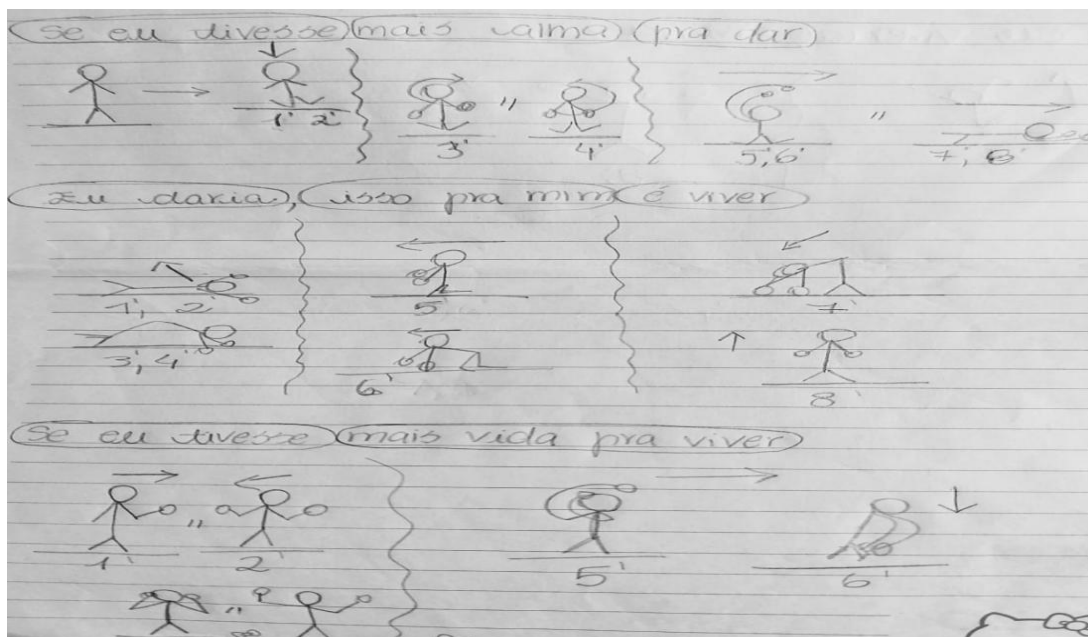 se eu tivesse mais alma pra dar
1' 2' 3' " 4' 5', 6' " 7', 8'
Eu daria, isso pra mim é viver
1', 2' 5' 7'
3', 4' 6' 8'
se eu tivesse mais vida pra viver
1' " 2' 5' 6'
"